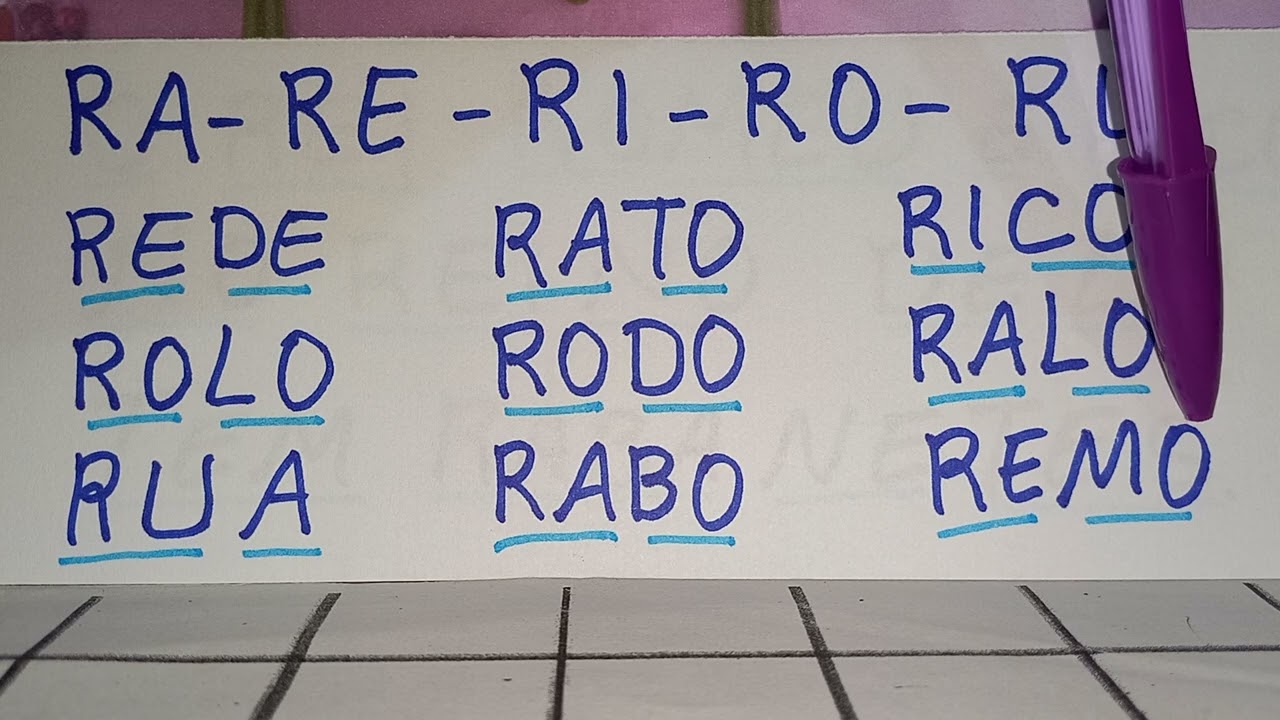 RA - RE - RI - RO - RU
REDE RATO RICO
ROLO RODO RALO
RUA RABO REMO